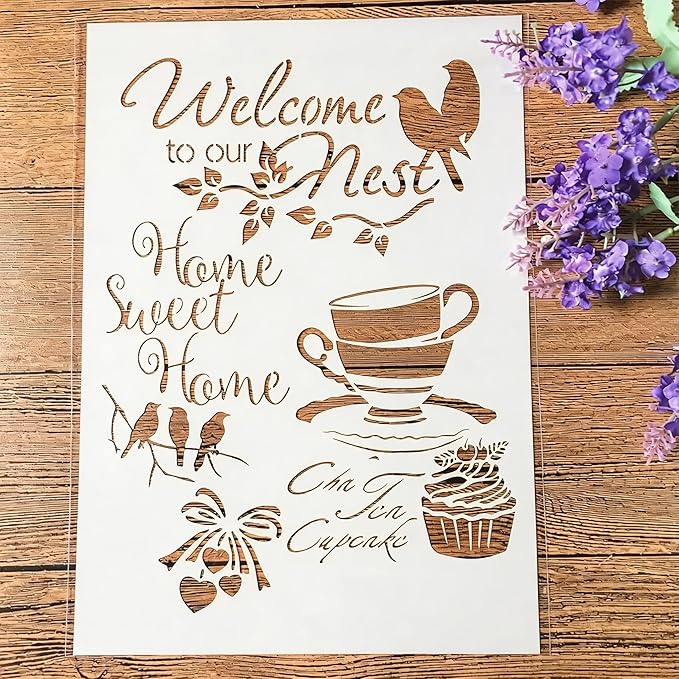 Welcome
to our Nest
Home
Sweet
Home
Cha Tea
Cupcake